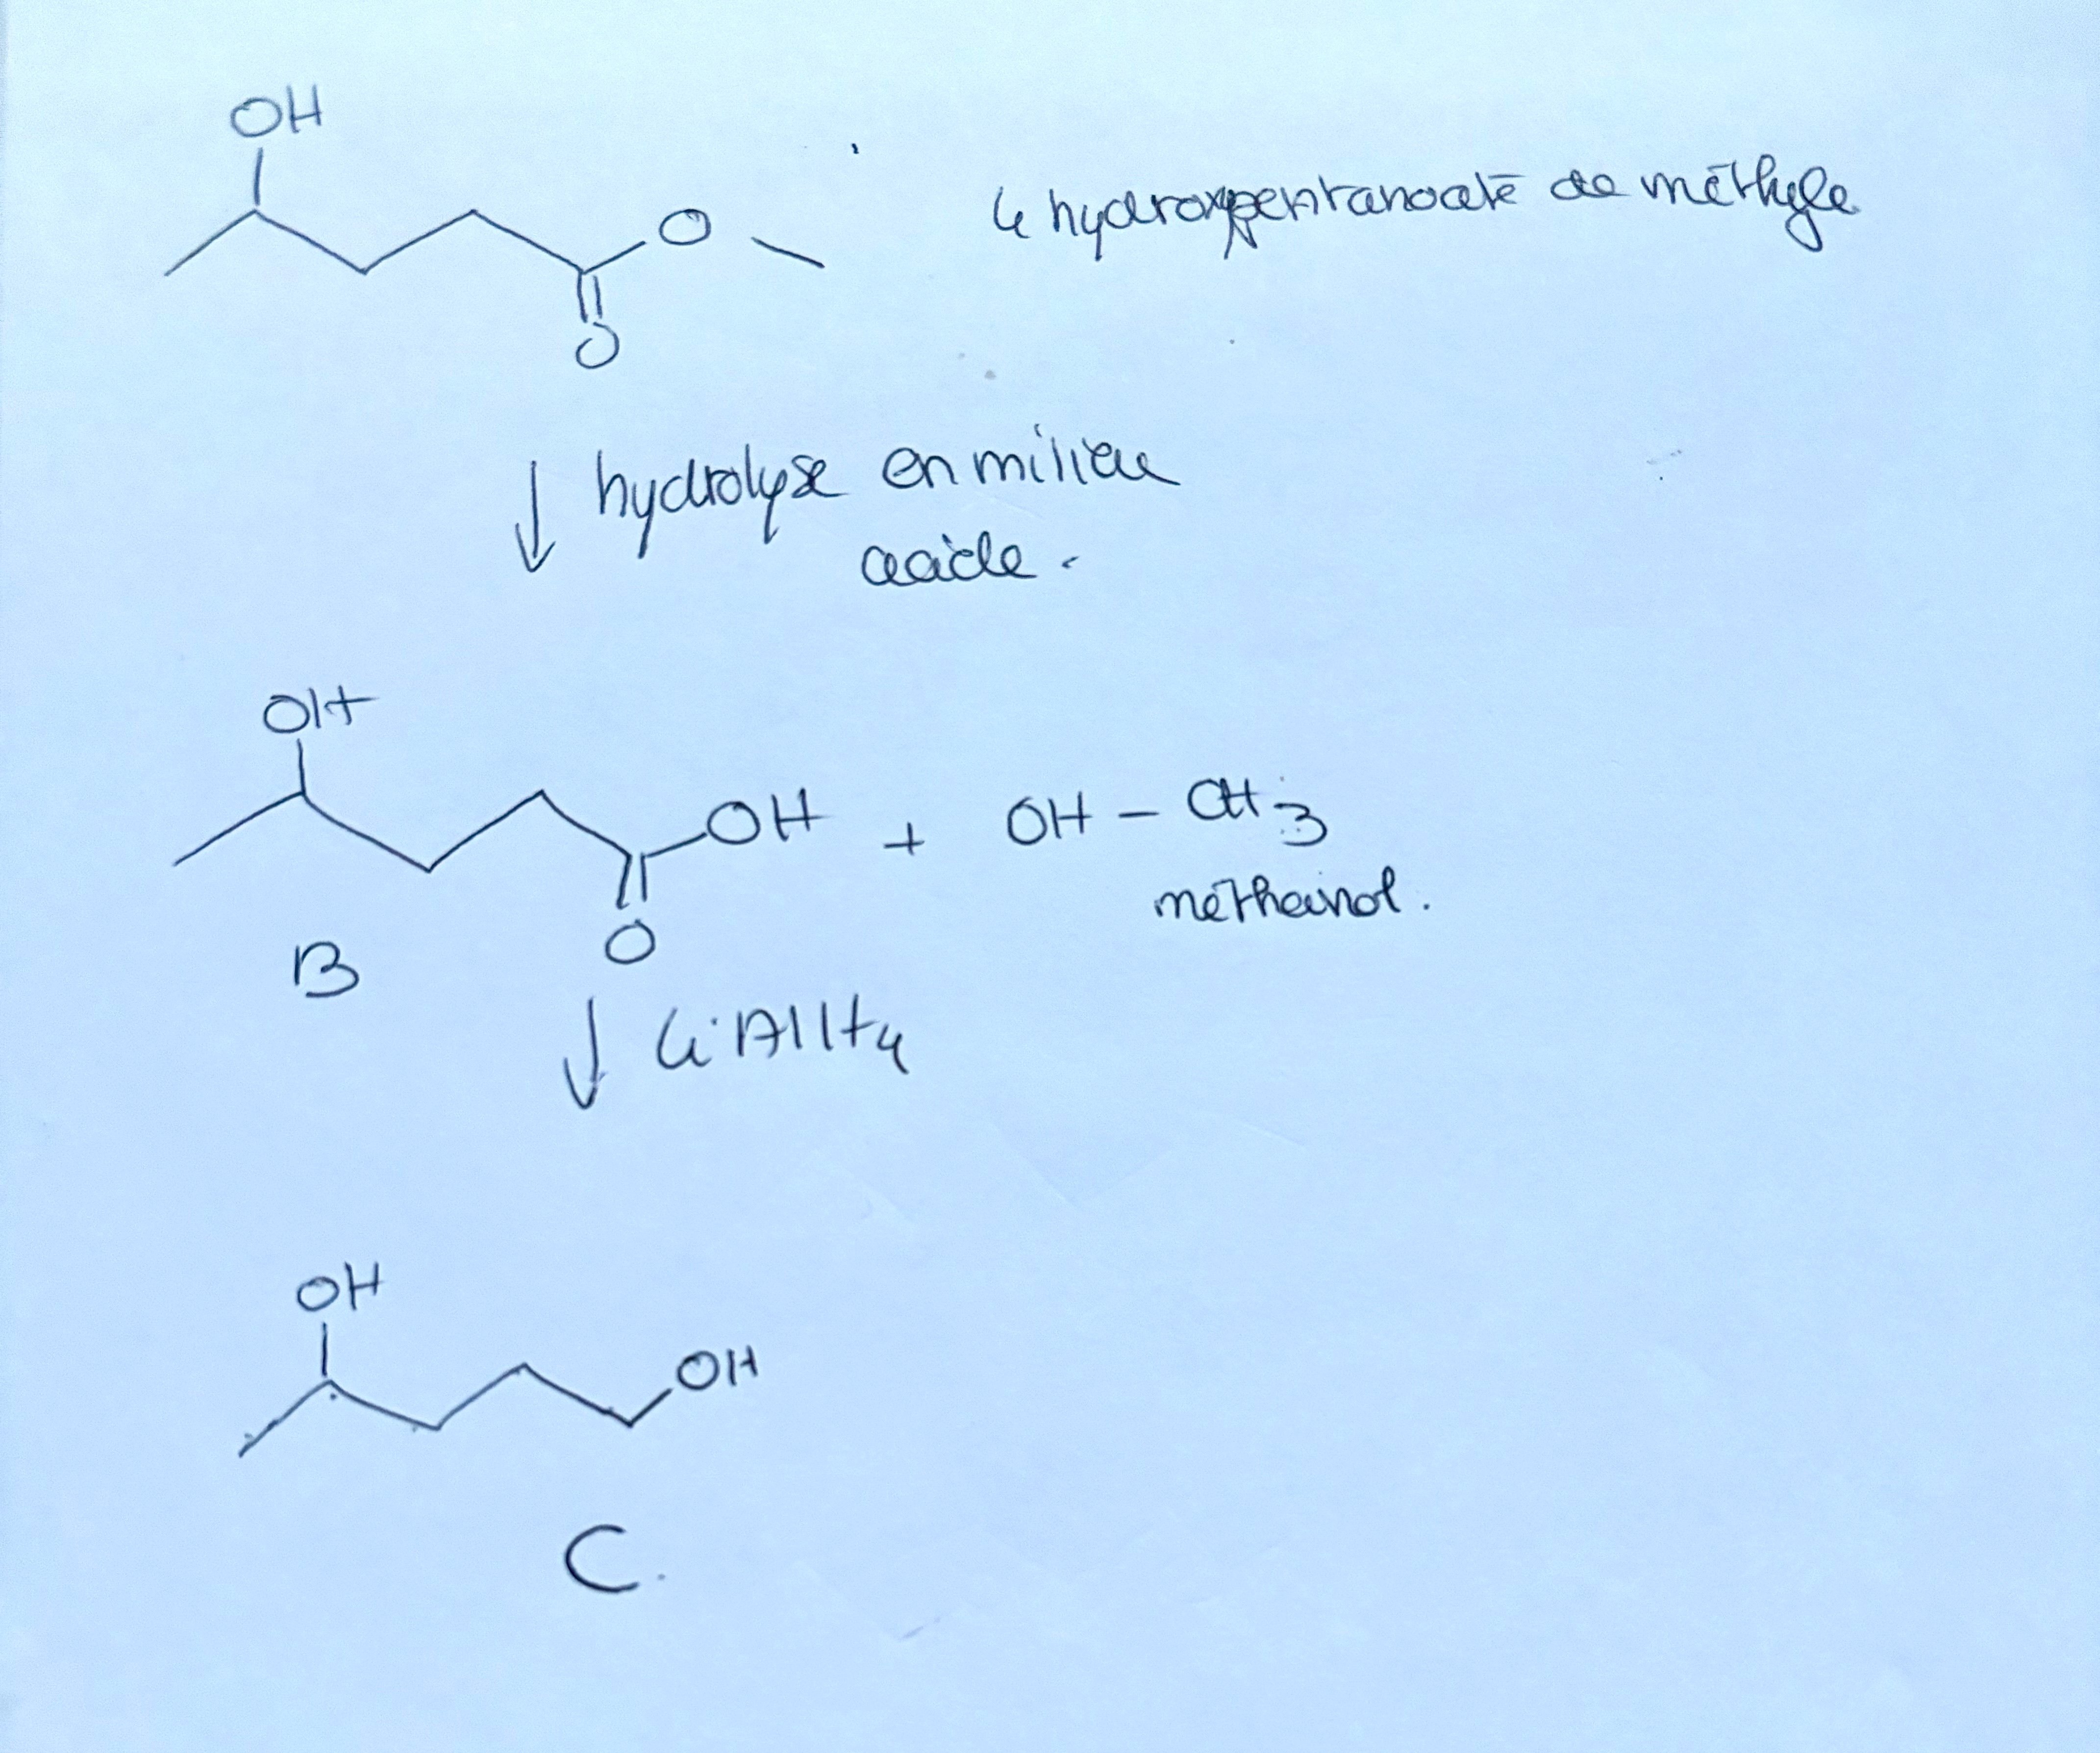 OH
4 hydroxypentanoate de méthyle
O
O
↓ hydrolyse en milieu
acide.
OH
OH + OH - CH3
méthanol.
O
B
↓ LiAlH4
OH
OH
C.